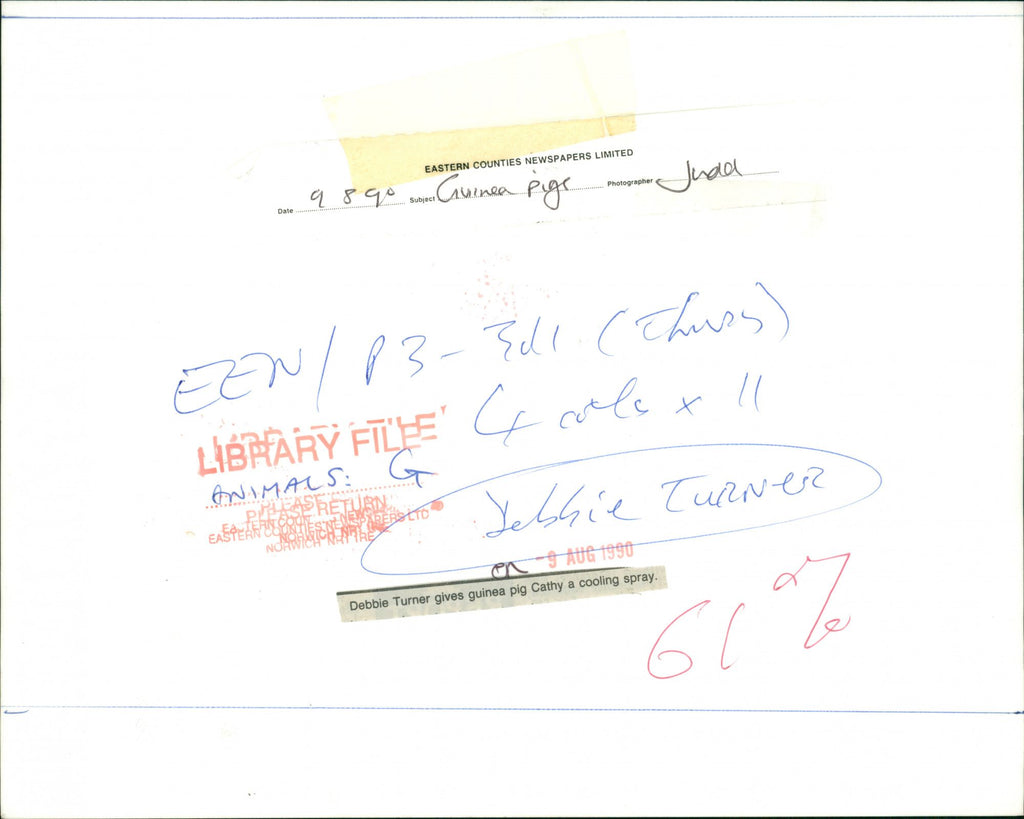 EASTERN COUNTIES NEWSPAPERS LIMITED
Date 9 8 90 Subject Guinea pigs Photographer Judd
EEN / P3 - 3d1 (Thurs)
4 cols x 11
LIBRARY FILE
ANIMALS: G
PLEASE RETURN
EASTERN COUNTIES NEWSPAPERS LTD
NORWICH NR1 1RE
Debbie Turner
on - 9 AUG 1990
Debbie Turner gives guinea pig Cathy a cooling spray.
61%